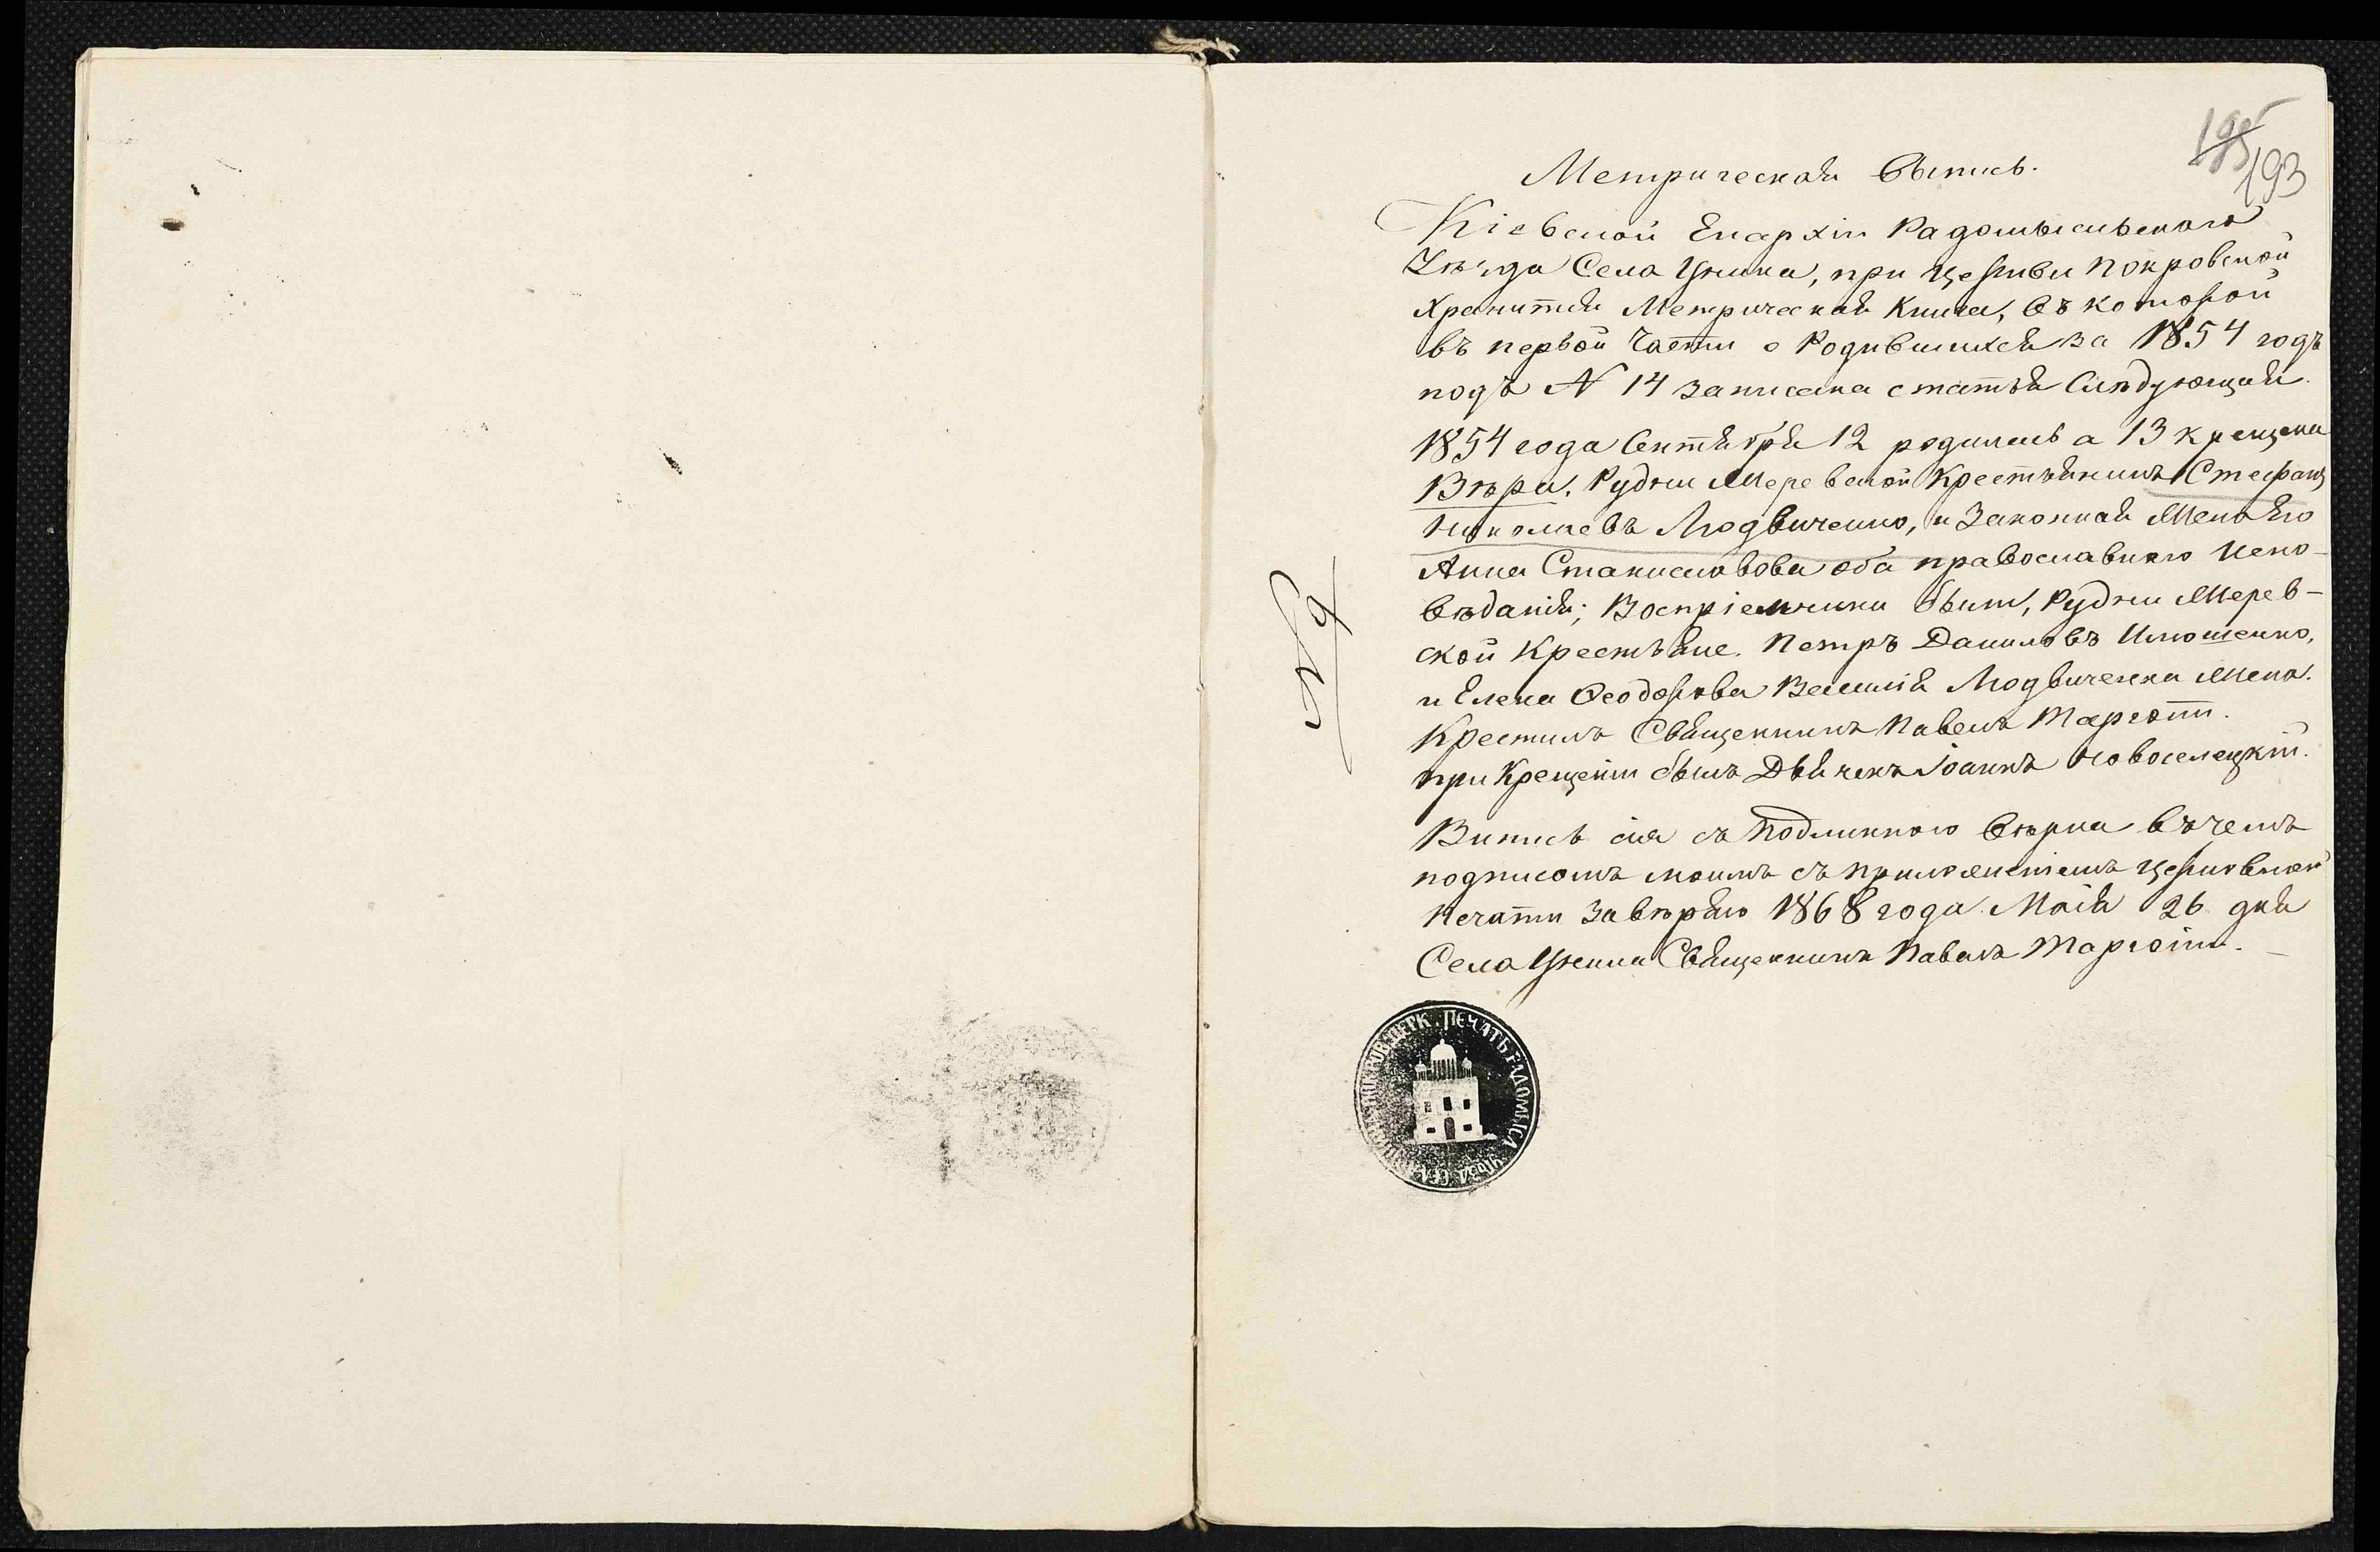 195
193
Метрическая Выпись.
Кіевской Епархіи Радомысльскаго
Уѣзда Села Уніна, при Церкви Покровской
Хранится Метрическая Книга, въ которой
въ первой Части о Родившихся за 1854 годъ
подъ № 14 записана статья Слѣдующая.
1854 года Сентября 12 родилась а 13 крещена
Вѣра. Рудни Жеревской Крестьянинъ Стефанъ
Николаевъ Людвиченко, и Законная Жена Его
Анна Станиславова оба православнаго Испо-
вѣданія; Воспріемники были, Рудни Жерев-
ской Крестьяне. Петръ Даниловъ Илюшенко,
и Елена Феодорова Василія Людвиченка Жена.
Крестилъ Священникъ Павелъ
при Крещеніи былъ Дьячекъ Іоаннъ Новоселецкій.
Випись сія съ Подлинного вѣрна въ чемъ
подписомъ моимъ съ приложеніемъ Церковной
Печати Завѣряю 1868 года Маія 26 дня
Села Уніна Священникъ Павелъ
№ 9
ЦЕРК. ПЕЧАТЬ РАДОМЫСЛ. УѢЗДА СЕЛА